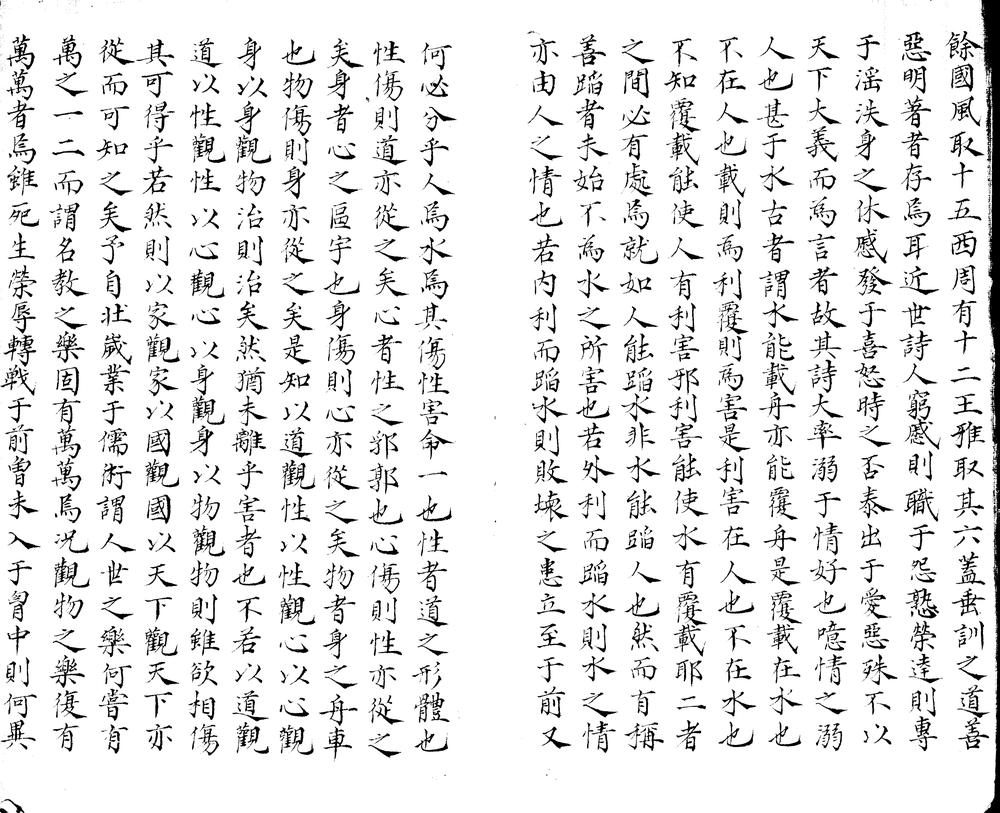 餘國風取十五西周有十二王雅取其六蓋垂訓之道善
惡明著者存焉耳近世詩人窮慼則職于怨憝榮逹則專
于滛泆身之休慼發于喜怒時之否泰出于愛惡殊不以
天下大義而為言者故其詩大率溺于情好也噫情之溺
人也甚于水古者謂水能載舟亦能覆舟是覆載在水也
不在人也載則為利覆則為害是利害在人也不在水也
不知覆載能使人有利害邪利害能使水有覆載耶二者
之間必有處焉就如人能蹈水非水能蹈人也然而有稱
善蹈者未始不為水之所害也若外利而蹈水則水之情
亦由人之情也若内利而蹈水則敗壊之患立至于前又
何必分乎人焉水焉其傷性害命一也性者道之形體也
性傷則道亦從之矣心者性之郛郭也心傷則性亦從之
矣身者心之區宇也身傷則心亦從之矣物者身之舟車
也物傷則身亦從之矣是知以道觀性以性觀心以心觀
身以身觀物治則治矣然猶未離乎害者也不若以道觀
道以性觀性以心觀心以身觀身以物觀物則雖欲相傷
其可得乎若然則以家觀家以國觀國以天下觀天下亦
從而可知之矣予自壯歲業于儒術謂人世之樂何嘗有
萬之一二而謂名教之樂固有萬萬焉况觀物之樂復有
萬萬者焉雖死生榮辱轉戰于前曾未入于胷中則何異